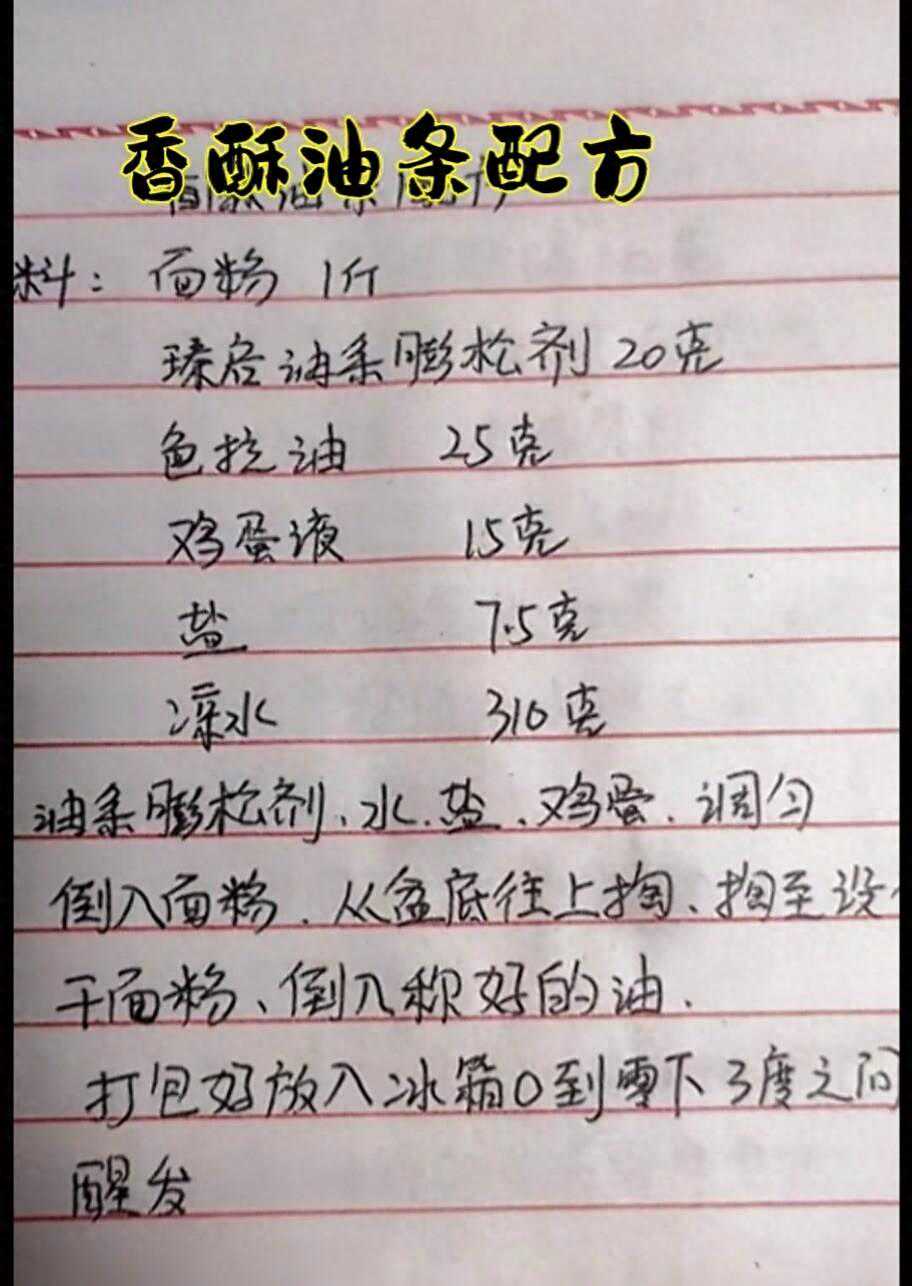 香酥油条配方
料：面粉 1斤
臻启油条膨松剂 20克
色拉油 25克
鸡蛋液 15克
盐 7.5克
凉水 310克
油条膨松剂、水.盐、鸡蛋、调匀
倒入面粉、从盆底往上掏、掏至没
干面粉、倒入称好的油.
打包好放入冰箱0到零下3度之间
醒发